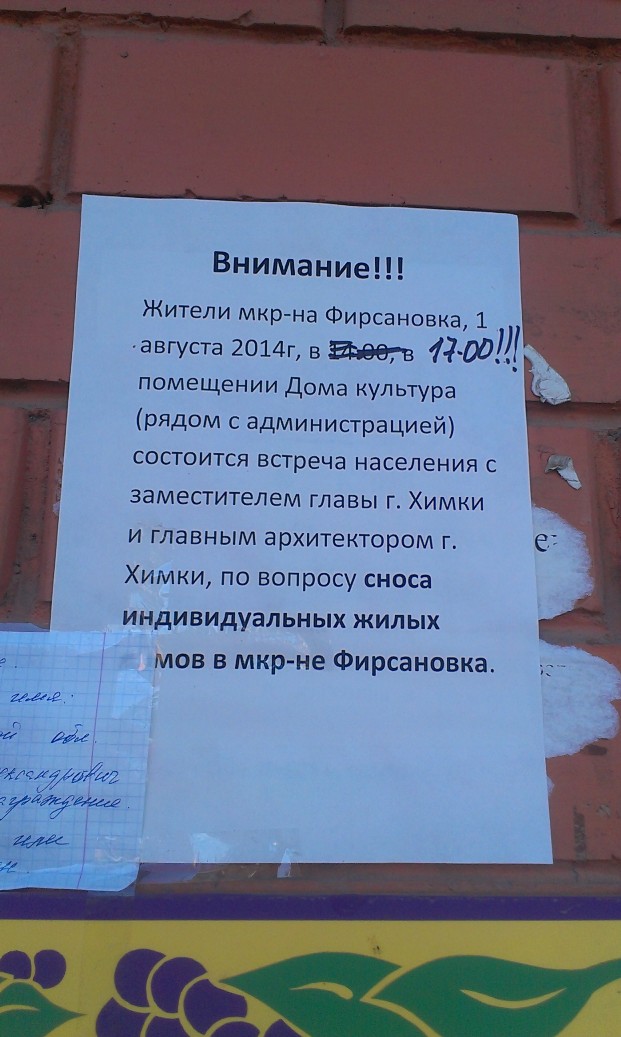 Внимание!!!
Жители мкр-на Фирсановка, 1
августа 2014г, в 14.00, в 17.00!!!
помещении Дома культура
(рядом с администрацией)
состоится встреча населения с
заместителем главы г. Химки
и главным архитектором г.
Химки, по вопросу сноса
индивидуальных жилых
мов в мкр-не Фирсановка.
обл.
или